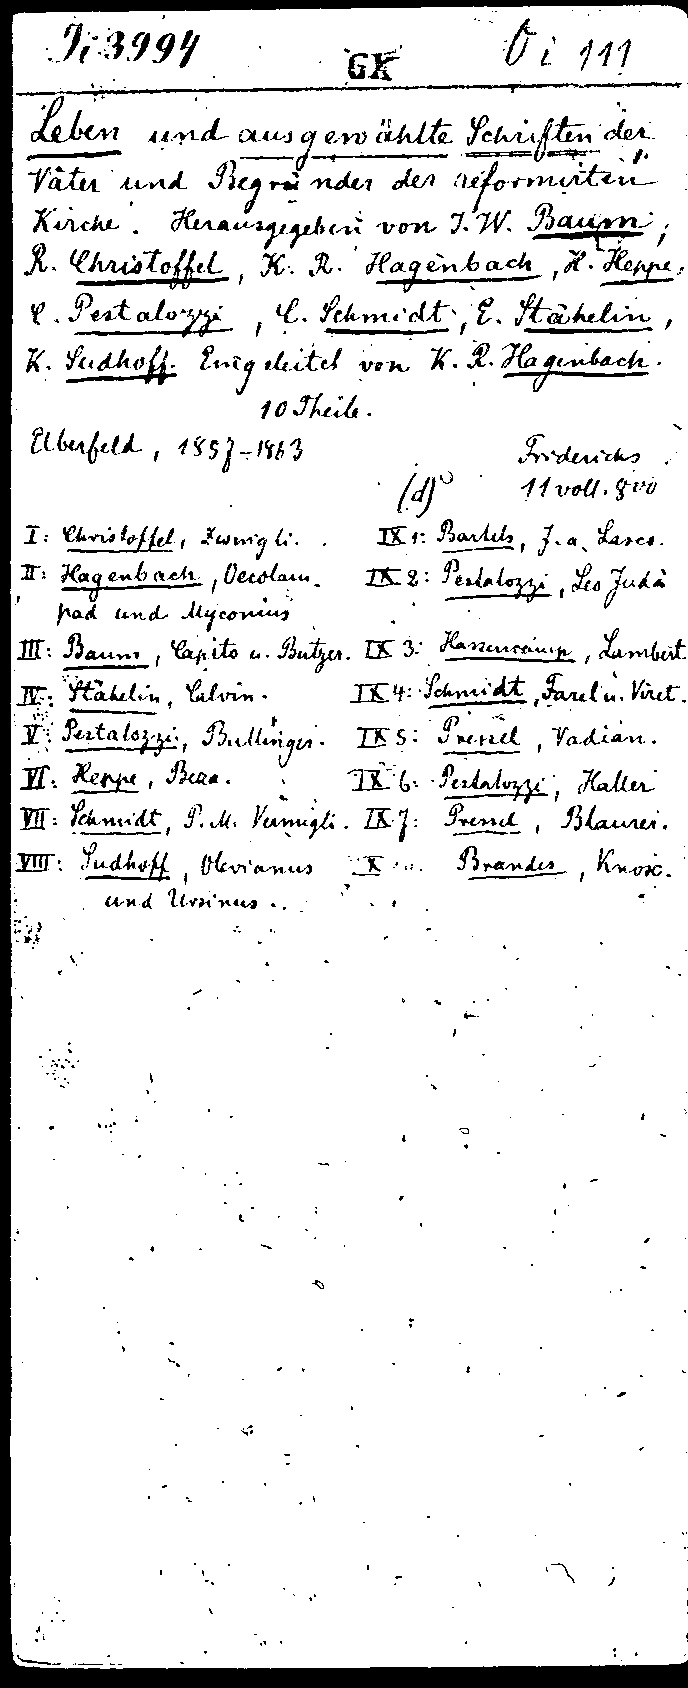 Ji 3994 GK Oi 111
Leben und ausgewählte Schriften der
Väter und Begründer der reformirten
Kirche. Herausgegeben von J. W. Baum,
R. Christoffel, K. R. Hagenbach, H. Heppe,
C. Pestalozzi, C. Schmidt, E. Stähelin,
K. Sudhoff. Eingeleitet von K. R. Hagenbach.
10 Theile.
Elberfeld, 1857-1863 Friderichs
(d) 11 voll. 8vo
I: Christoffel, Zwingli. IX 1: Bartels, J. a Lasco.
II: Hagenbach, Oecolam- IX 2: Pestalozzi, Leo Judä
pad und Myconius
III: Baum, Capito u. Butzer. IX 3: Hassencamp, Lambert
IV: Stähelin, Calvin. IX 4: Schmidt, Farel u. Viret.
V: Pestalozzi, Bullinger. IX 5: Pressel, Vadian.
VI: Heppe, Beza. IX 6: Pestalozzi, Haller
VII: Schmidt, P. M. Vermigli. IX 7: Pressel, Blaurer.
VIII: Sudhoff, Olevianus X Brandes, Knox.
und Ursinus.